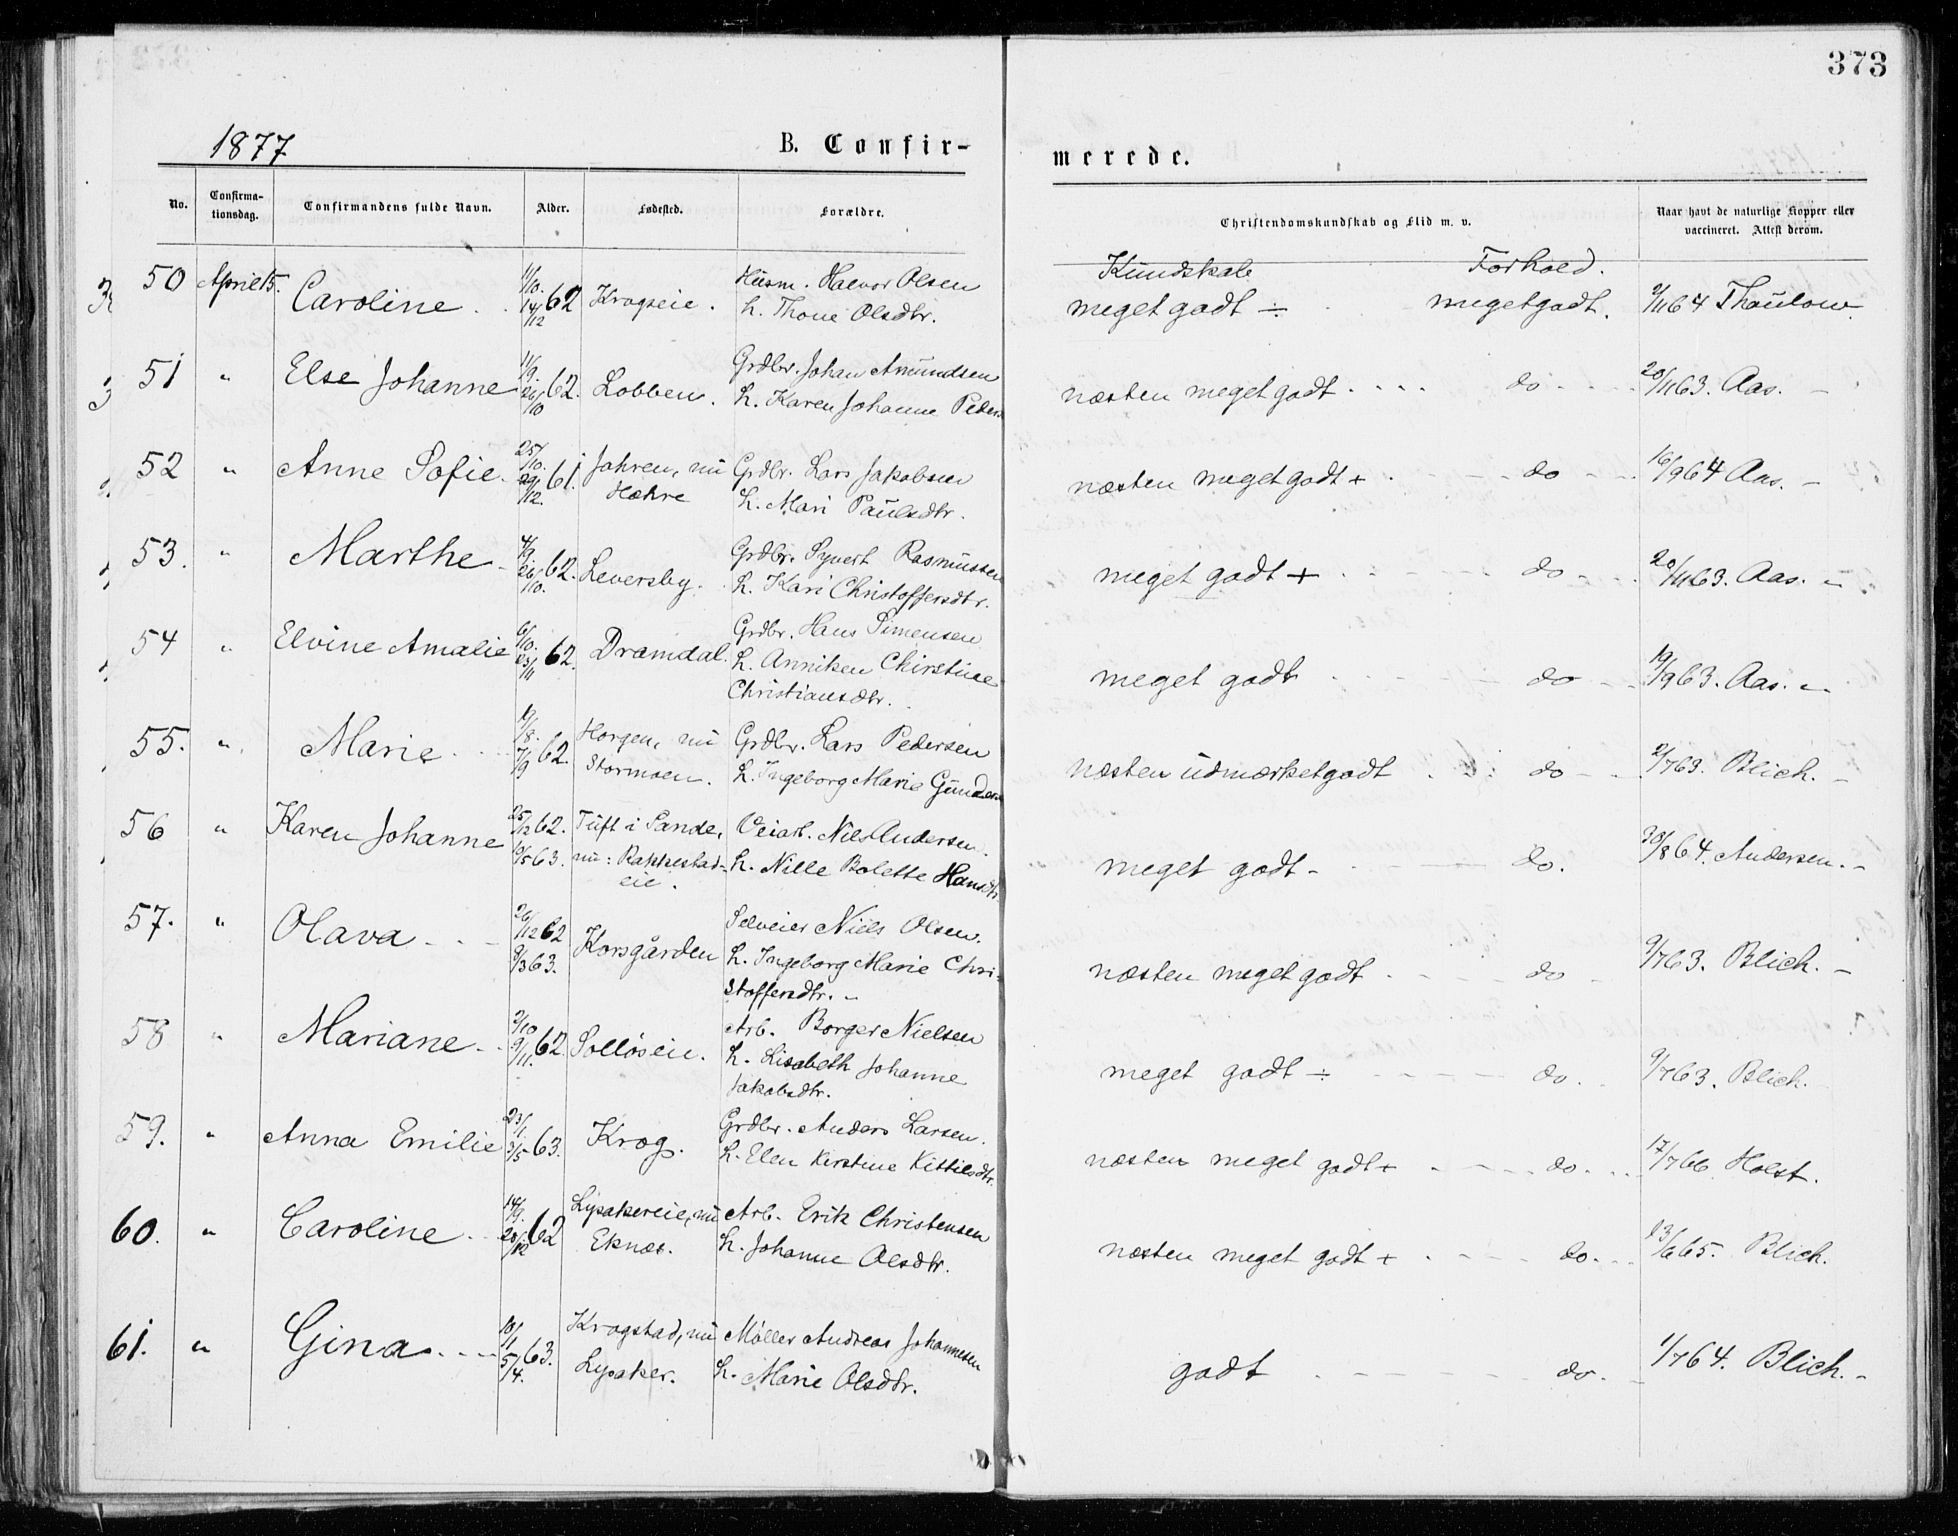 373
1877
B. Confir-
merede.
No.
Confirma-
tionsdag.
Confirmandens fulde Navn.
Alder.
Fødested.
Forældre.
Christendomskundskab og Flid m. v.
Naar havt de naturlige Kopper eller
vaccineret. Attest derom.
Kundskab
Forhold.
50 April 15. Caroline 11/10. 14/12 62 Krogseie. Husm. Halvor Olsen
h. Thone Olsdtr.
meget godt ÷ meget godt. 9/11 64 Thaulow.
51 " Else Johanne 11/9. 26/10 62. Lobben. Grdbr. Johan Amundsen
h. Karen Johanne Peders
næsten meget godt do 20/11 63. Aas.
52 " Anne Sofie 25/10. 29/12. 61. Jahren, nu Grdbr. Lars Jakobsen
Hækre h. Mari Paulsdtr.
næsten meget godt + do 16/9 64 Aas.
53. " Marthe 4/9 26/10. 62. Leversby. Grdbr. Syvert Rasmussen
h. Kari Christoffersdtr.
meget godt + do 20/11 63. Aas.
54 " Elvine Amalie 6/10. 23/11 62. Dramdal. Grdbr. Hans Simensen
h. Anniken Chirstine
Christiansdtr.
meget godt do 19/9 63. Aas.
55. " Marie 19/8. 7/9 62. Horgen, nu Grdbr. Lars Pedersen
Stormoen. h. Ingeborg Marie Gunders
næsten udmærket godt do 2/7 63. Blich.
56 " Karen Johanne 25/12 62. Tuft i Sande, Veiarb. Niels Andersen.
10/5 63. nu: Rakkestad- h. Nille Bolette Hansdtr.
eie.
meget godt do. 30/8 64. Andersen.
57. " Olava 26/12 62 Korsgården Selveier Niels Olsen.
8/3 63. h. Ingeborg Marie Chri-
stoffersdtr.
næsten meget godt do 9/7 63. Blich.
58 " Mariane 2/10 9/11. 62. Solløseie. Arb. Borger Nielsen
h. Lisabeth Johanne
Jakobsdtr.
meget godt ÷ do. 9/7 63. Blich.
59. " Anna Emilie 23/1. 3/5 63. Krog. Grdbr. Anders Larsen.
h. Elen Kirstine Kittilsdtr.
næsten meget godt + do. 17/7 66. Holst.
60. " Caroline 14/9. 20/12 62 Lysakereie, nu Arb. Erik Christensen
Eknæs. h. Johanne Olsdtr.
næsten meget godt + do. 13/6 65. Blich.
61. " Gina 10/1 5/4. 63. Krogstad, nu Møller Andreas Johannesen
Lysaker. h. Marie Olsdtr.
godt do. 1/7 64. Blich.